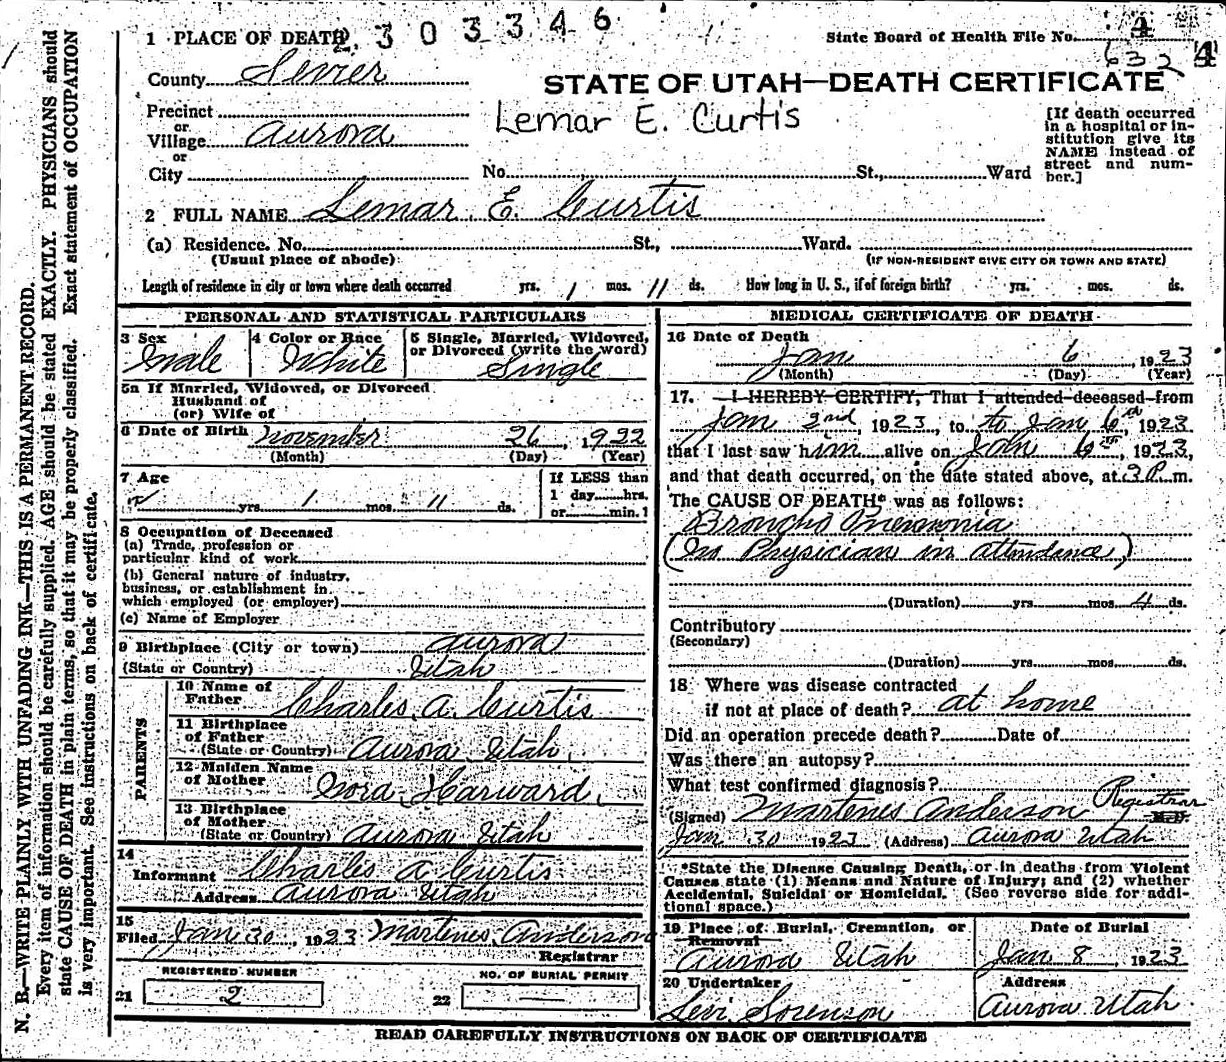 2 303346
1 PLACE OF DEATH
State Board of Health File No. 4
632 4
County Sevier
STATE OF UTAH—DEATH CERTIFICATE
Precinct
or
Village Aurora
or
City
Lemar E. Curtis
[If death occurred
in a hospital or in-
stitution give its
NAME instead of
street and num-
ber.]
No. St., Ward
2 FULL NAME Lemar E. Curtis
(a) Residence. No. St., Ward.
(Usual place of abode) (IF NON-RESIDENT GIVE CITY OR TOWN AND STATE)
Length of residence in city or town where death occurred yrs. 1 mos. 11 ds. How long in U. S., if of foreign birth? yrs. mos. ds.
PERSONAL AND STATISTICAL PARTICULARS
3 Sex
Male
4 Color or Race
White
5 Single, Married, Widowed,
or Divorced (write the word)
Single
5a If Married, Widowed, or Divorced
Husband of
(or) Wife of
6 Date of Birth November 26, 1922
(Month) (Day) (Year)
7 Age
yrs. 1 mos. 11 ds.
If LESS than
1 day hrs.
or min.
8 Occupation of Deceased
(a) Trade, profession or
particular kind of work
(b) General nature of industry,
business, or establishment in
which employed (or employer)
(c) Name of Employer
9 Birthplace (City or town) Aurora
(State or Country) Utah
PARENTS
10 Name of
Father Charles A. Curtis
11 Birthplace
of Father
(State or Country) Aurora Utah
12 Maiden Name
of Mother Nora Harward
13 Birthplace
of Mother
(State or Country) Aurora Utah
14
Informant Charles A Curtis
Address Aurora Utah
15
Filed Jan 30, 1923 Martenes Anderson
Registrar
REGISTERED NUMBER
21 2
NO. OF BURIAL PERMIT
22 —
MEDICAL CERTIFICATE OF DEATH
16 Date of Death
Jan 6 1923
(Month) (Day) (Year)
17. I HEREBY CERTIFY, That I attended deceased from
Jan 2nd, 1923, to to Jan 6th, 1923
that I last saw him alive on Jan 6th, 1923,
and that death occurred, on the date stated above, at 3 P. m.
The CAUSE OF DEATH* was as follows:
Broncho Pnemonia
(No Physician in attendance)
(Duration) yrs. mos. 4 ds.
Contributory
(Secondary)
(Duration) yrs. mos. ds.
18 Where was disease contracted
if not at place of death? at home
Did an operation precede death? Date of
Was there an autopsy?
What test confirmed diagnosis?
(Signed) Martenes Anderson Registrar M.D.
Jan 30 1923 (Address) Aurora Utah
*State the Disease Causing Death, or in deaths from Violent
Causes state (1) Means and Nature of Injury; and (2) whether
Accidental, Suicidal or Homicidal. (See reverse side for addi-
tional space.)
19 Place of Burial, Cremation, or
Removal
Aurora Utah
Date of Burial
Jan 8, 1923
20 Undertaker
Levi Sorenson
Address
Aurora Utah
READ CAREFULLY INSTRUCTIONS ON BACK OF CERTIFICATE
N. B.—WRITE PLAINLY WITH UNFADING INK—THIS IS A PERMANENT RECORD.
Every item of information should be carefully supplied. AGE should be stated EXACTLY. PHYSICIANS should
state CAUSE OF DEATH in plain terms, so that it may be properly classified. Exact statement of OCCUPATION
is very important. See instructions on back of certificate.